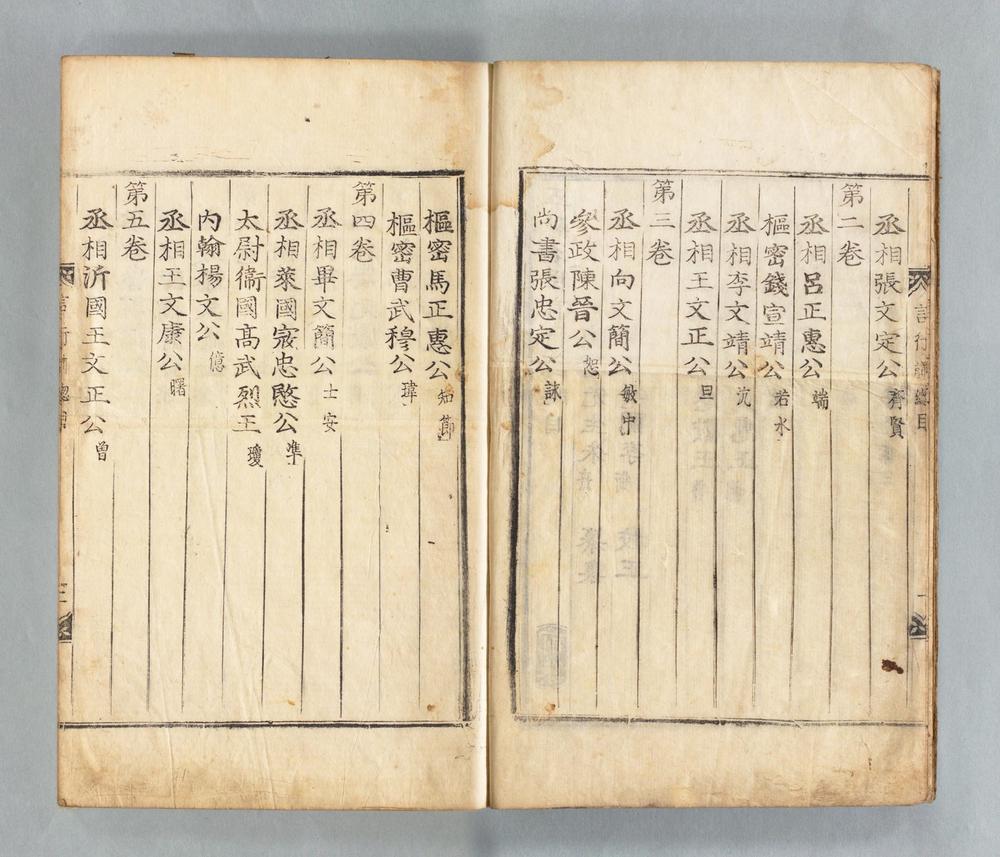 丞相張文定公 齊賢
第二卷
丞相呂正惠公 端
樞密錢宣靖公 若水
丞相李文靖公 沆
丞相王文正公 旦
第三卷
丞相向文簡公 敏中
參政陳晉公 恕
尙書張忠定公 詠
樞密馬正惠公 知節
樞密曹武穆公 瑋
第四卷
丞相畢文簡公 士安
丞相萊國寇忠愍公 準
太尉衞國高武烈王 瓊
內翰楊文公 億
丞相王文康公 曙
第五卷
丞相沂國王文正公 曾